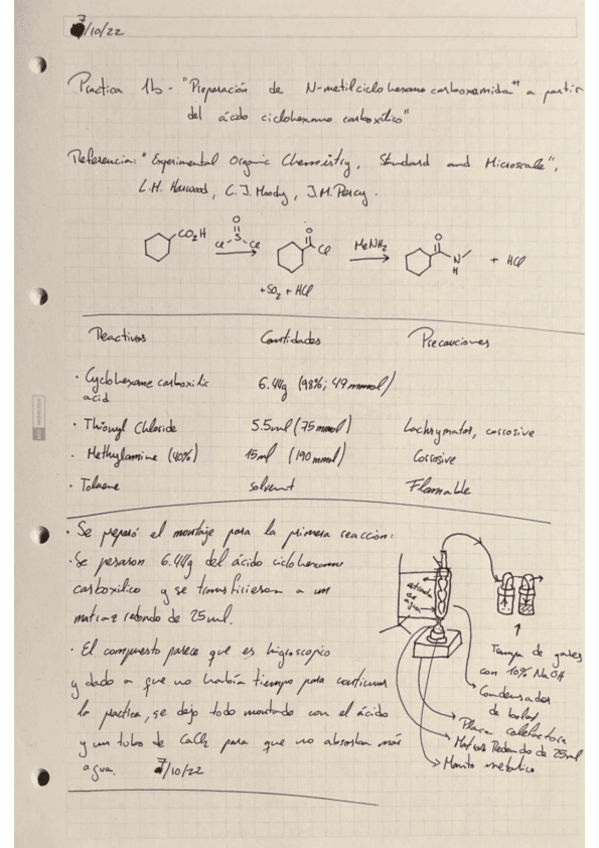 7/10/22
Practica 1b - "Preparación de N-metilciclohexano carboxamida" a partir
del ácido ciclohexano carboxílico"
Referencia: "Experimental Organic Chemistry, Standard and Microscale",
L.M. Harwood, C.J. Moody, J.M. Percy.
CO2H
O
Cl S Cl
O
Cl
MeNH2
O
N
H
+ HCl
+ SO2 + HCl
Reactivos Cantidades Precauciones
· Cyclohexane carboxilic
acid
6.44g (98%; 49 mmol)
· Thionyl Chloride 5.5ml (75 mmol) Lachrymator, corrosive
· Methylamine (40%) 15ml (190 mmol) Corrosive
· Toluene solvent Flamable
· Se preparó el montaje para la primera reacción:
· Se pesaron 6.44g del ácido ciclohexano
carboxilico y se transfirieron a un
matraz redondo de 25ml.
· El compuesto parece que es higroscopico
y dado a que no había tiempo para continuar
la practica, se dejo todo montado con el ácido
y un tubo de CaCl2 para que no absorban más
agua. 7/10/22
de
agua
Trampa de gases
con 10% NaOH
Condensador
de bolas
Placa calefactora
Matraz Redondo de 25ml
metalico